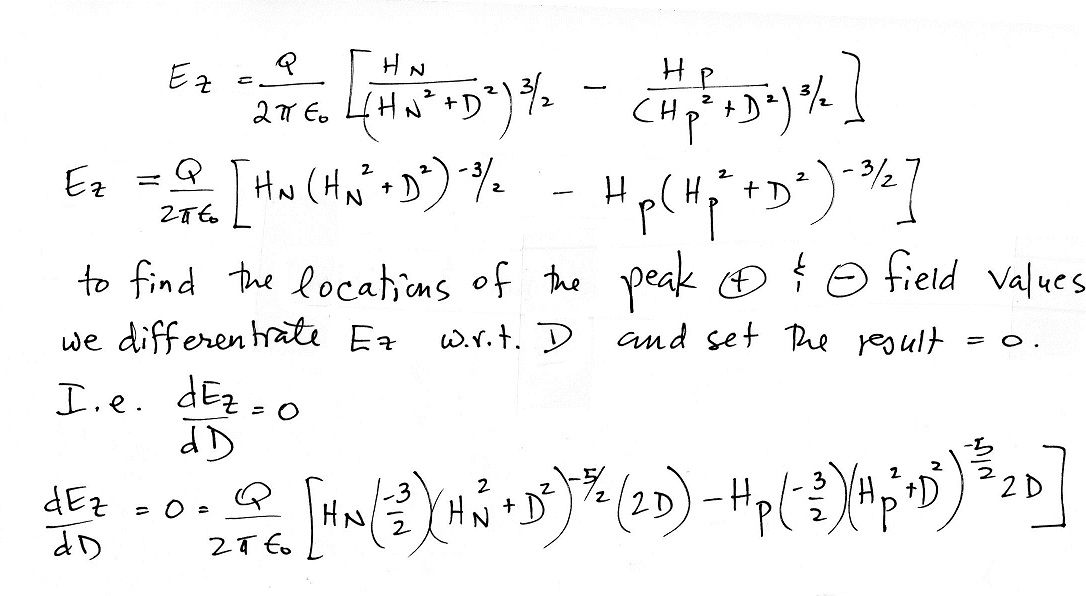 E_z = Q/(2πε₀) [ H_N/(H_N² + D²)^(3/2) − H_P/(H_P² + D²)^(3/2) ]
E_z = Q/(2πε₀) [ H_N (H_N² + D²)^(-3/2) − H_P (H_P² + D²)^(-3/2) ]
to find the locations of the peak ⊕ & ⊖ field values
we differentrate E_z w.r.t. D and set the result = 0.
I.e. dE_z/dD = 0
dE_z/dD = 0 = Q/(2πε₀) [ H_N (-3/2)(H_N² + D²)^(-5/2) (2D) − H_P (-3/2)(H_P² + D²)^(-5/2) 2D ]